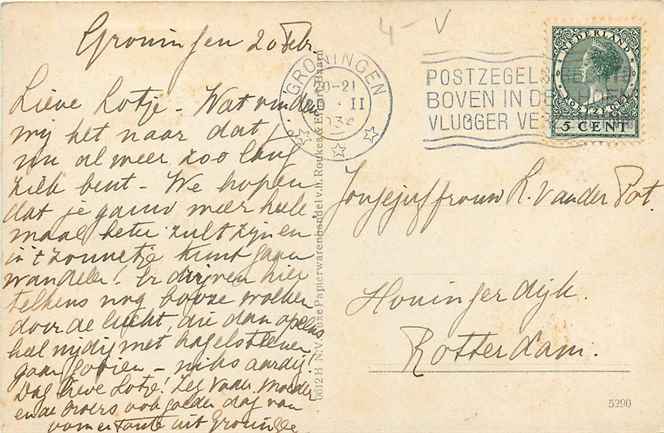 4 - V
Groningen 20 Febr.
Lieve Lotje - Wat vinden
wij het naar dat je
nu al meer zoo lang
ziek bent - We hopen
dat je gauw weer hele-
maal beter zult zijn en
in 't zonnetje kunt gaan
wandelen! Er drijven hier
telkens nog booze wolken
door de lucht, die dan opeens
heel nijdig met hagelsteenen
gaan gooien - niks aardig!
Dag lieve Lotje! Zeg Vader, Moeder
en de broers ook goeden dag van
oom en tante uit Groningen
GRONINGEN
20-21
II
POSTZEGELS
BOVEN IN DE
VLUGGER
NEDERLAND
5 CENT
Jongejuffrouw L. van der Pot.
Honingerdijk.
Rotterdam.
6612 H N.V. Luxe Papierwarenhandel v.h. Roukes & Erhart Baarn
5290